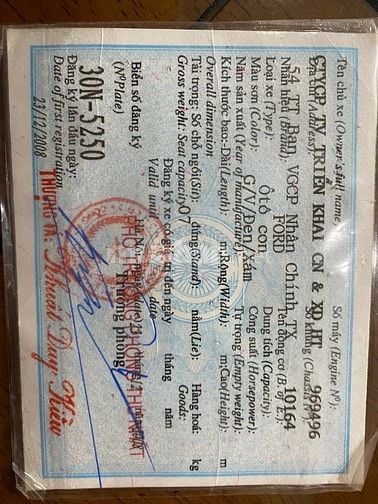 Tên chủ xe (Owner's full name):
CTYCP TV TRIỂN KHAI CN & XD HT
Địa chỉ (Address):
54 TT Bđộ VGCP Nhân Chính TX
Nhãn hiệu (Brand): FORD
Loại xe (Type): Ô tô con
Màu sơn (Color): G/N/Đen/Xám
Năm sản xuất (Year of manufacture):
Kích thước bao: Dài (Length) m; Rộng (Width) m; Cao (Height) m
Overall dimension
Tải trọng: Số chỗ ngồi (Sit) 07 đứng (Stand) nằm (Lie) Hàng hoá: kg
Gross weight: Seat capacity Goods:
Số máy (Engine Nº): 969496
Số khung (Chassis Nº): 10164
Dung tích (Capacity):
Công suất (Horsepower):
Tự trọng (Empty weight):
Đăng ký xe có giá trị đến ngày tháng năm
Valid until date
Biển số đăng ký
(Nº Plate)
30N-5250
Đăng ký lần đầu ngày:
Date of first registration
23/12/2008
Trưởng phòng
THƯỢNG TÁ: Khuất Duy Kiều